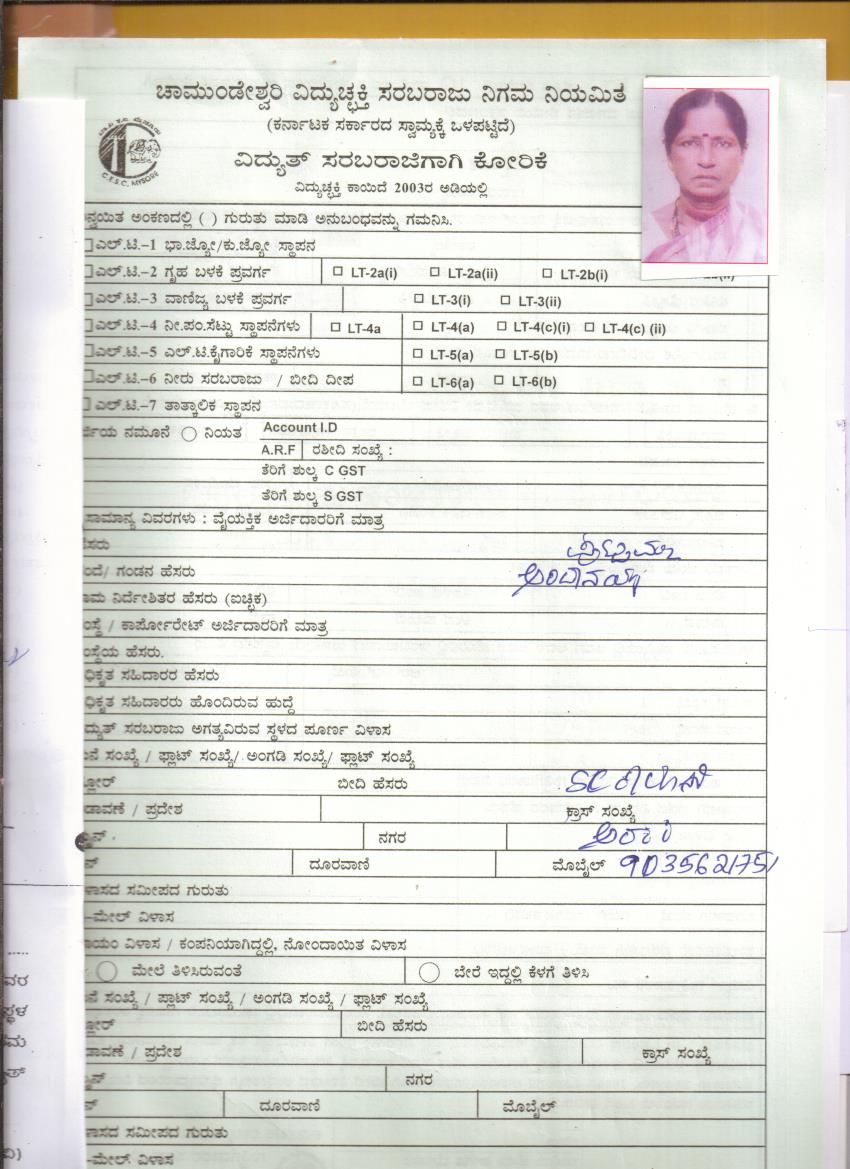 ಚಾಮುಂಡೇಶ್ವರಿ ವಿದ್ಯುಚ್ಛಕ್ತಿ ಸರಬರಾಜು ನಿಗಮ ನಿಯಮಿತ
(ಕರ್ನಾಟಕ ಸರ್ಕಾರದ ಸ್ವಾಮ್ಯಕ್ಕೆ ಒಳಪಟ್ಟಿದೆ)
C.E.S.C. MYSORE
ವಿದ್ಯುತ್ ಸರಬರಾಜಿಗಾಗಿ ಕೋರಿಕೆ
ವಿದ್ಯುಚ್ಛಕ್ತಿ ಕಾಯಿದೆ 2003ರ ಅಡಿಯಲ್ಲಿ
ನ್ವಯಿತ ಅಂಕಣದಲ್ಲಿ ( ) ಗುರುತು ಮಾಡಿ ಅನುಬಂಧವನ್ನು ಗಮನಿಸಿ.
ಎಲ್.ಟಿ.–1 ಭಾ.ಜ್ಯೋ/ಕು.ಜ್ಯೋ ಸ್ಥಾಪನ
ಎಲ್.ಟಿ.–2 ಗೃಹ ಬಳಕೆ ಪ್ರವರ್ಗ LT-2a(i) LT-2a(ii) LT-2b(i)
ಎಲ್.ಟಿ.–3 ವಾಣಿಜ್ಯ ಬಳಕೆ ಪ್ರವರ್ಗ LT-3(i) LT-3(ii)
ಎಲ್.ಟಿ.–4 ನೀ.ಪಂ.ಸೆಟ್ಟು ಸ್ಥಾಪನೆಗಳು LT-4a LT-4(a) LT-4(c)(i) LT-4(c) (ii)
ಎಲ್.ಟಿ.–5 ಎಲ್.ಟಿ.ಕೈಗಾರಿಕೆ ಸ್ಥಾಪನೆಗಳು LT-5(a) LT-5(b)
ಎಲ್.ಟಿ.–6 ನೀರು ಸರಬರಾಜು / ಬೀದಿ ದೀಪ LT-6(a) LT-6(b)
ಎಲ್.ಟಿ.–7 ತಾತ್ಕಾಲಿಕ ಸ್ಥಾಪನ
ರ್ಜಿಯ ನಮೂನೆ ನಿಯತ Account I.D
A.R.F ರಶೀದಿ ಸಂಖ್ಯೆ :
ತೆರಿಗೆ ಶುಲ್ಕ C GST
ತೆರಿಗೆ ಶುಲ್ಕ S GST
ಸಾಮಾನ್ಯ ವಿವರಗಳು : ವೈಯಕ್ತಿಕ ಅರ್ಜಿದಾರರಿಗೆ ಮಾತ್ರ
ಸರು
ದೆ/ ಗಂಡನ ಹೆಸರು
ಮ ನಿರ್ದೇಶಿತರ ಹೆಸರು (ಐಚ್ಛಿಕ)
ಸ್ಥೆ / ಕಾರ್ಪೋರೇಟ್ ಅರ್ಜಿದಾರರಿಗೆ ಮಾತ್ರ
ಸ್ಥೆಯ ಹೆಸರು.
ಧಿಕೃತ ಸಹಿದಾರರ ಹೆಸರು
ಧಿಕೃತ ಸಹಿದಾರರು ಹೊಂದಿರುವ ಹುದ್ದೆ
ದ್ಯುತ್ ಸರಬರಾಜು ಅಗತ್ಯವಿರುವ ಸ್ಥಳದ ಪೂರ್ಣ ವಿಳಾಸ
ನೆ ಸಂಖ್ಯೆ / ಪ್ಲಾಟ್ ಸಂಖ್ಯೆ/ ಅಂಗಡಿ ಸಂಖ್ಯೆ/ ಫ್ಲಾಟ್ ಸಂಖ್ಯೆ
ಲೋರ್ ಬೀದಿ ಹೆಸರು
ಡಾವಣೆ / ಪ್ರದೇಶ ಕ್ರಾಸ್ ಸಂಖ್ಯೆ
ನಗರ
ದೂರವಾಣಿ ಮೊಬೈಲ್ 9035621751
ಳಾಸದ ಸಮೀಪದ ಗುರುತು
–ಮೇಲ್ ವಿಳಾಸ
ಾಯಂ ವಿಳಾಸ / ಕಂಪನಿಯಾಗಿದ್ದಲ್ಲಿ, ನೋಂದಾಯಿತ ವಿಳಾಸ
ಮೇಲೆ ತಿಳಿಸಿರುವಂತೆ ಬೇರೆ ಇದ್ದಲ್ಲಿ ಕೆಳಗೆ ತಿಳಿಸಿ
ನೆ ಸಂಖ್ಯೆ / ಪ್ಲಾಟ್ ಸಂಖ್ಯೆ / ಅಂಗಡಿ ಸಂಖ್ಯೆ / ಫ್ಲಾಟ್ ಸಂಖ್ಯೆ
ಲೋರ್ ಬೀದಿ ಹೆಸರು
ಡಾವಣೆ / ಪ್ರದೇಶ ಕ್ರಾಸ್ ಸಂಖ್ಯೆ
ನಗರ
ದೂರವಾಣಿ ಮೊಬೈಲ್
ಳಾಸದ ಸಮೀಪದ ಗುರುತು
–ಮೇಲ್ ವಿಳಾಸ